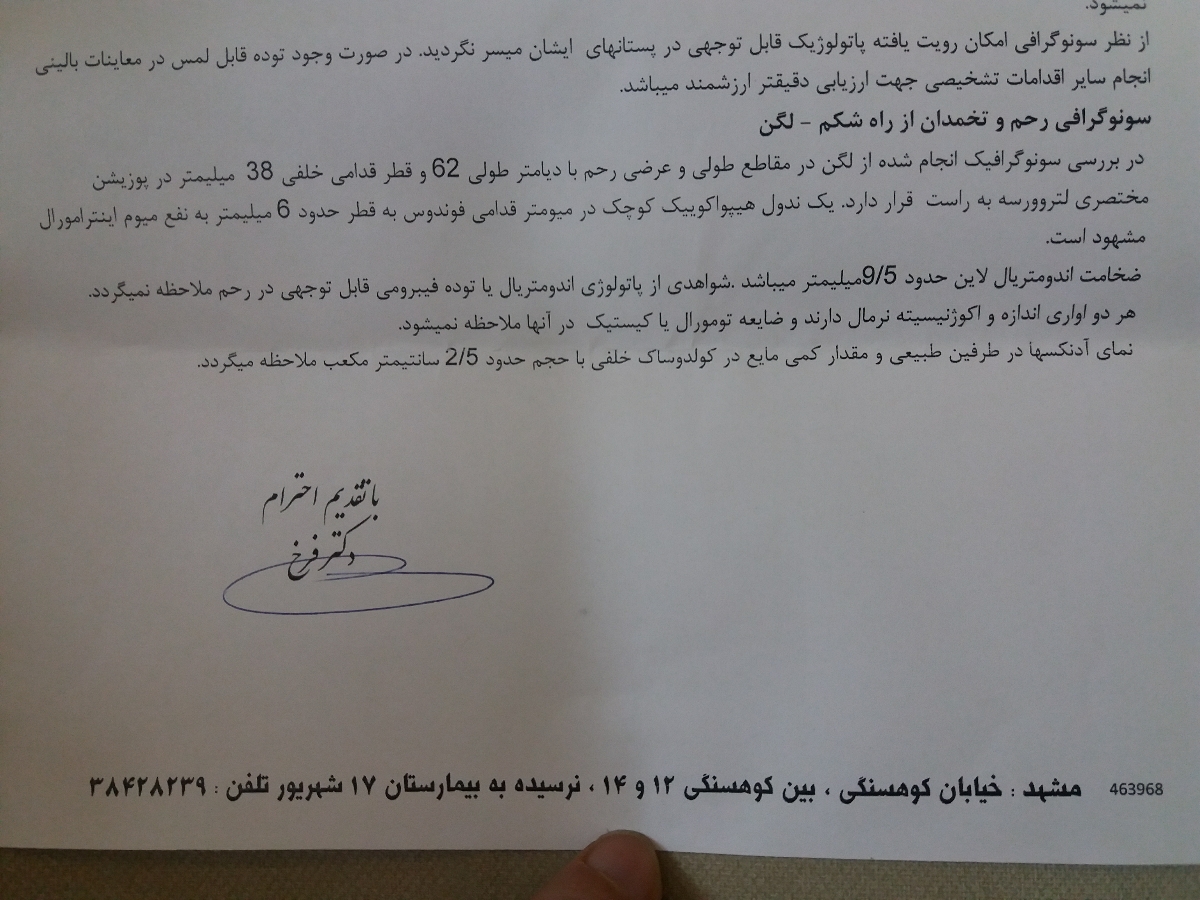 نمیشود.
از نظر سونوگرافی امکان رویت یافته پاتولوژیک قابل توجهی در پستانهای ایشان میسر نگردید. در صورت وجود توده قابل لمس در معاینات بالینی
انجام سایر اقدامات تشخیصی جهت ارزیابی دقیقتر ارزشمند میباشد.
سونوگرافی رحم و تخمدان از راه شکم – لگن
در بررسی سونوگرافیک انجام شده از لگن در مقاطع طولی و عرضی رحم با دیامتر طولی 62 و قطر قدامی خلفی 38 میلیمتر در پوزیشن
مختصری لتروورسه به راست قرار دارد. یک ندول هیپواکوییک کوچک در میومتر قدامی فوندوس به قطر حدود 6 میلیمتر به نفع میوم اینترامورال
مشهود است.
ضخامت اندومتریال لاین حدود 9/5میلیمتر میباشد .شواهدی از پاتولوژی اندومتریال یا توده فیبرومی قابل توجهی در رحم ملاحظه نمیگردد.
هر دو اواری اندازه و اکوژنیسیته نرمال دارند و ضایعه تومورال یا کیستیک در آنها ملاحظه نمیشود.
نمای آدنکسها در طرفین طبیعی و مقدار کمی مایع در کولدوساک خلفی با حجم حدود 2/5 سانتیمتر مکعب ملاحظه میگردد.
با تقدیم احترام
دکتر فرخ
463968 مشهد : خیابان کوهسنگی ، بین کوهسنگی ۱۲ و ۱۴ ، نرسیده به بیمارستان ۱۷ شهریور تلفن : ۳۸۴۲۸۲۳۹